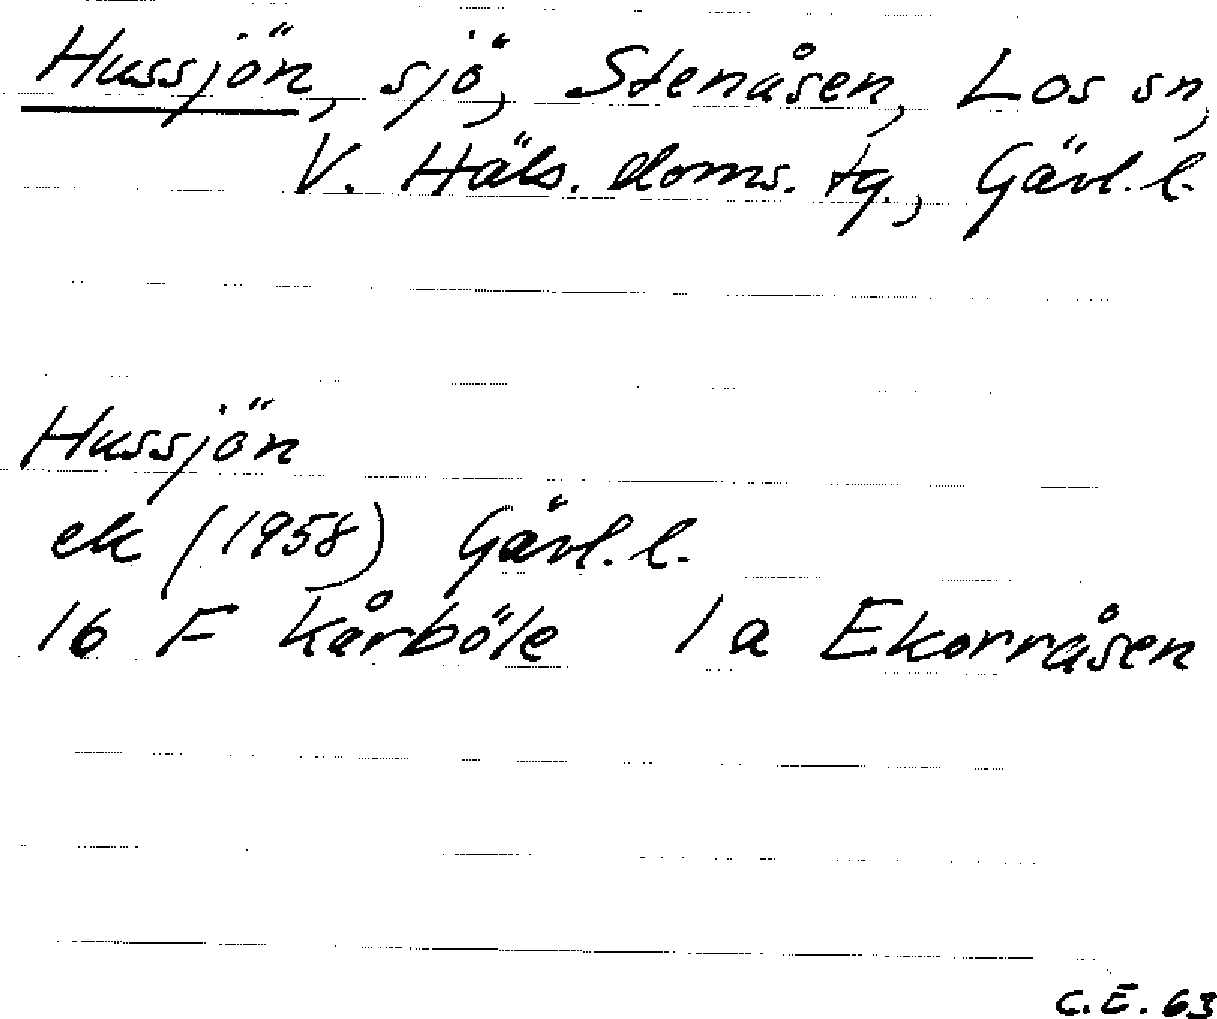 Hussjön, sjö, Stenåsen, Los sn,
V. Häls. doms. tg., Gävl. l.
Hussjön
ek (1958) Gävl. l.
16 F Kårböle 1a Ekorråsen
C.E. 63